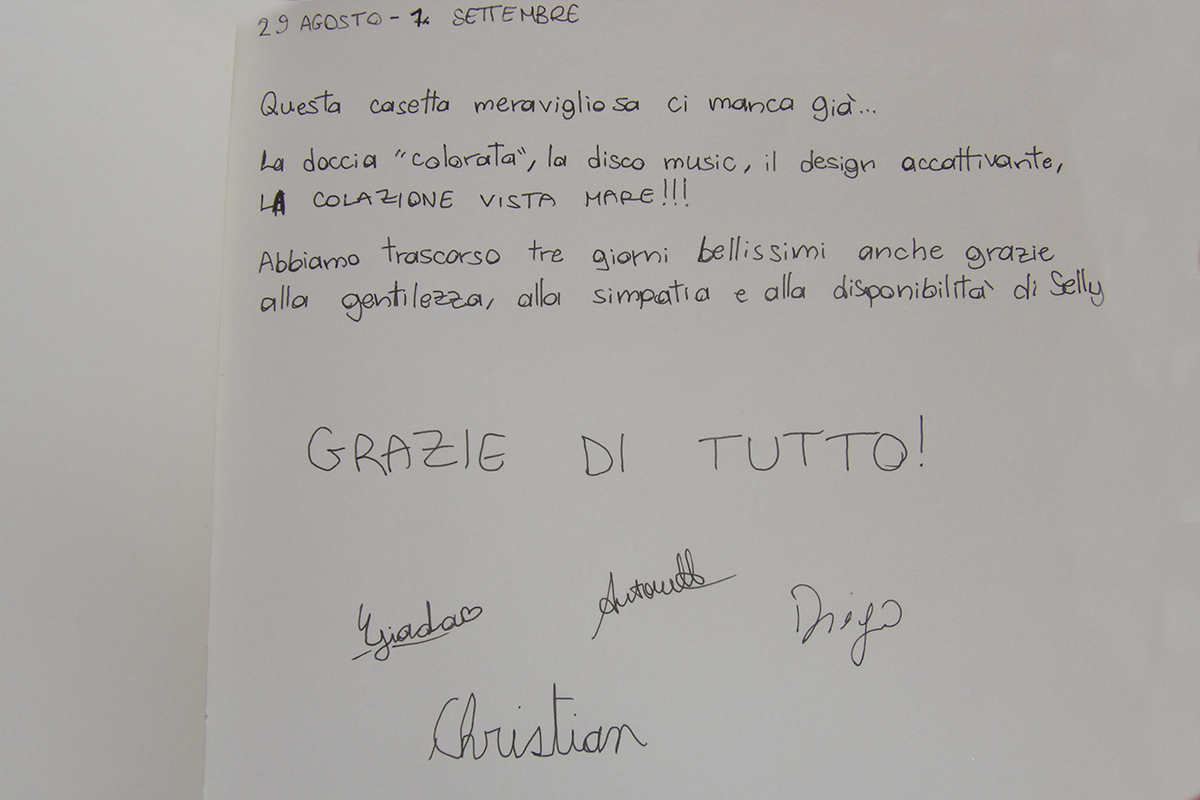 29 AGOSTO - 1 SETTEMBRE
Questa casetta meravigliosa ci manca già...
La doccia "colorata", la disco music, il design accattivante,
LA COLAZIONE VISTA MARE!!!
Abbiamo trascorso tre giorni bellissimi anche grazie
alla gentilezza, alla simpatia e alla disponibilità di Selly
GRAZIE DI TUTTO!
Giada Antonella Diego
Christian